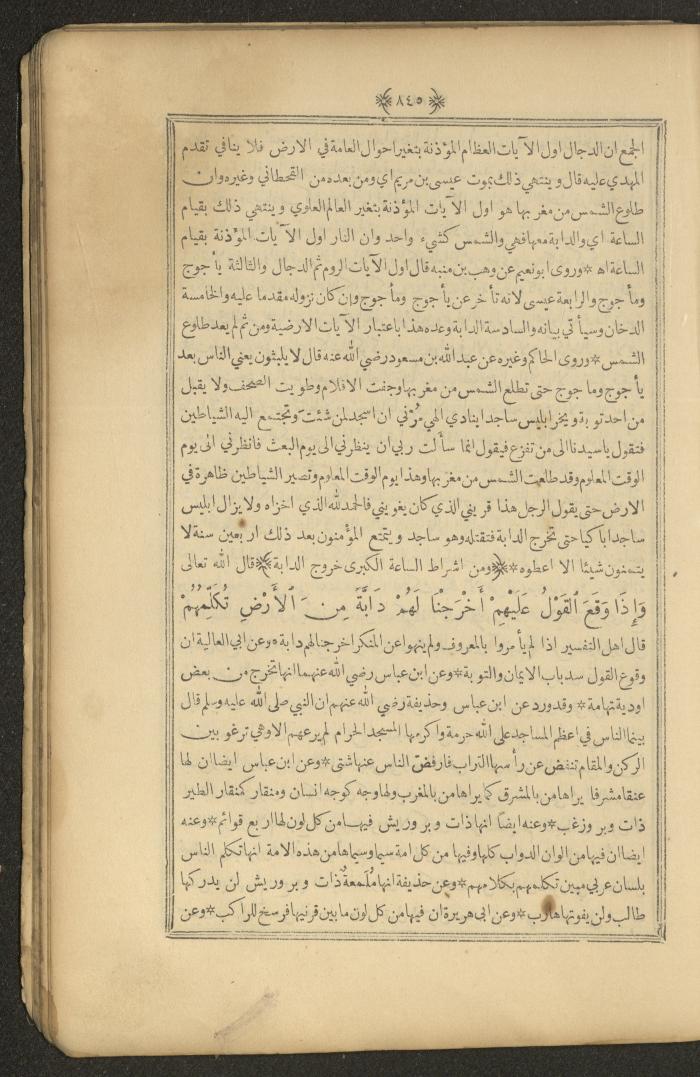 ٨٤٥
الجمع ان الدجال اول الآيات العظام المؤذنة بتغير احوال العامة في الارض فلا ينافي تقدم
المهدي عليه قال وينتهي ذلك بموت عيسى بن مريم اي ومن بعده من القحطاني وغيره وان
طلوع الشمس من مغربها هو اول الآيات المؤذنة بتغير العالم العلوي وينتهي ذلك بقيام
الساعة اي والدابة معها فهي والشمس كشيء واحد وان النار اول الآيات المؤذنة بقيام
الساعة اه * وروى ابو نعيم عن وهب بن منبه قال اول الآيات الروم ثم الدجال والثالثة يأجوج
ومأجوج والرابعة عيسى لانه تأخر عن يأجوج ومأجوج وإن كان نزوله مقدما عليه والخامسة
الدخان وسيأتي بيانه والسادسة الدابة وعده هذا باعتبار الآيات الارضية ومن ثم لم يعد طلوع
الشمس * وروى الحاكم وغيره عن عبد الله بن مسعود رضي الله عنه قال لا يلبثون يعني الناس بعد
يأجوج وماجوج حتى تطلع الشمس من مغربها وجفت الاقلام وطويت الصحف ولا يقبل
من احد توبة ويخر ابليس ساجدا ينادي الهي مُرْني ان اسجد لمن شئت وتجتمع اليه الشياطين
فتقول ياسيدنا الى من تفزع فيقول انما سألت ربي ان ينظرني الى يوم البعث فانظرني الى يوم
الوقت المعلوم وقد طلعت الشمس من مغربها وهذا يوم الوقت المعلوم وتصير الشياطين ظاهرة في
الارض حتى يقول الرجل هذا قريني الذي كان يغويني فالحمد لله الذي اخزاه ولا يزال ابليس
ساجدا باكيا حتى تخرج الدابة فتقتله وهو ساجد ويتمتع المؤمنون بعد ذلك اربعين سنة لا
يتمنون شيئا الا اعطوه * ومن اشراط الساعة الكبرى خروج الدابة * قال الله تعالى
وَإِذَا وَقَعَ ٱلقَوْلُ عَلَيْهِمْ أَخْرَجْنَا لَهُمْ دَابَّةً مِنَ ٱلأَرْضِ تُكَلِّمُهُمْ
قال اهل التفسير اذا لم يأمروا بالمعروف ولم ينهوا عن المنكر اخرجنا لهم دابة * وعن ابي العالية ان
وقوع القول سد باب الايمان والتوبة * وعن ابن عباس رضي الله عنهما انها تخرج من بعض
اودية تهامة * وقد ورد عن ابن عباس وحذيفة رضي الله عنهم ان النبي صلى الله عليه وسلم قال
بينما الناس في اعظم المساجد على الله حرمة واكرمها المسجد الحرام لم يرعهم الا وهي ترغو بين
الركن والمقام تنفض عن رأسها التراب فارفض الناس عنها شتى * وعن ابن عباس ايضا ان لها
عنقا مشرفا يراها من بالمشرق كما يراها من بالمغرب ولها وجه كوجه انسان ومنقار كمنقار الطير
ذات وبر وزغب * وعنه ايضا انها ذات وبر وريش فيها من كل لون لها اربع قوائم * وعنه
ايضا ان فيها من الوان الدواب كلها وفيها من كل امة سيما وسيماها من هذه الامة انها تكلم الناس
بلسان عربي مبين تكلمهم بكلامهم * وعن حذيفة انها مُلَمعة ذات وبر وريش لن يدركها
طالب ولن يفوتها هارب * وعن ابي هريرة ان فيها من كل لون ما بين قرنيها فرسخ للراكب * وعن